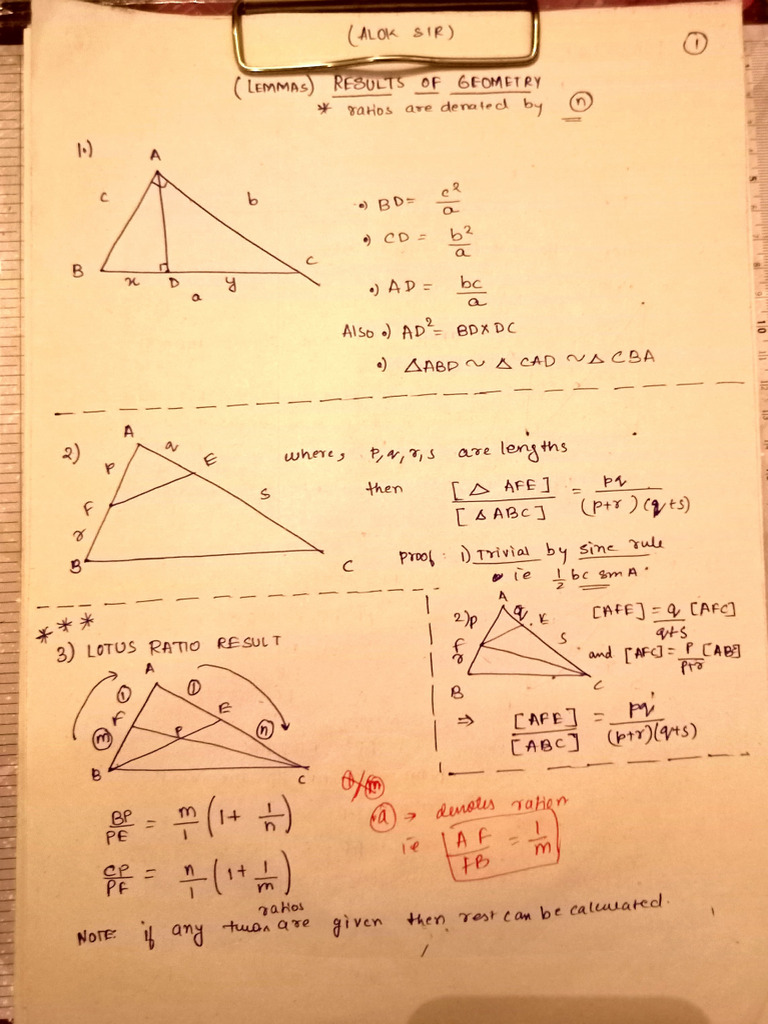 (ALOK SIR)
1
(LEMMAS) RESULTS OF GEOMETRY
* ratios are denated by n
1.)
A
c
b
B
x
D
y
C
a
•) BD = c²/a
•) CD = b²/a
•) AD = bc/a
Also •) AD² = BD×DC
•) △ABD ~ △CAD ~ △CBA
2)
A
q
p
E
F
s
r
B
C
where, p,q,r,s are lengths
then [△ AFE]/[△ ABC] = pq/(p+r)(q+s)
Proof: 1) Trivial by sine rule
• ie ½ bc sin A.
2)
A
q
p
E
F
s
r
B
C
[AFE] = q/(q+s) [AFC]
and [AFC] = p/(p+r) [AB]
⇒ [AFE]/[ABC] = pq/(p+r)(q+s)
***
3) LOTUS RATIO RESULT
A
1
1
F
E
m
P
n
B
C
BP/PE = m/1 (1 + 1/n)
CP/PF = n/1 (1 + 1/m)
a → denotes ration
ie AF/FB = 1/m
ratios
NOTE: if any are given then rest can be calculated.